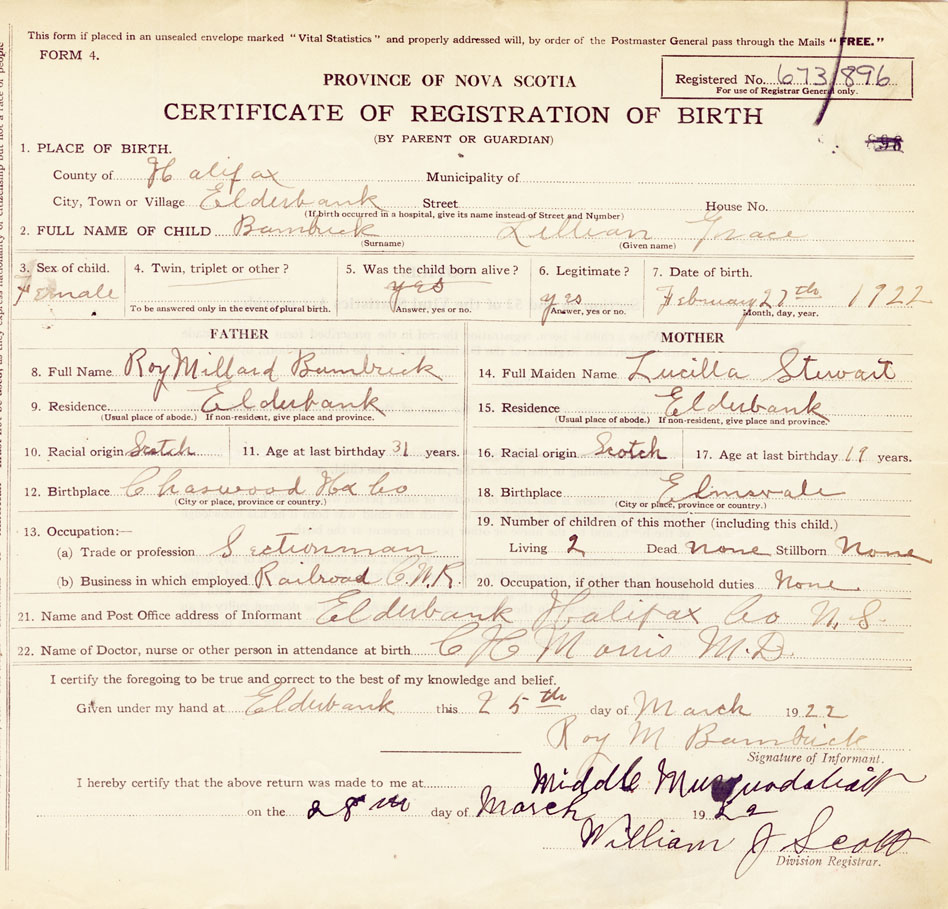 This form if placed in an unsealed envelope marked "Vital Statistics" and properly addressed will, by order of the Postmaster General pass through the Mails "FREE."
FORM 4.
Registered No. 673/896
For use of Registrar General only.
PROVINCE OF NOVA SCOTIA
CERTIFICATE OF REGISTRATION OF BIRTH
(BY PARENT OR GUARDIAN)
898
1. PLACE OF BIRTH.
County of Halifax Municipality of
City, Town or Village Elderbank Street House No.
(If birth occurred in a hospital, give its name instead of Street and Number)
2. FULL NAME OF CHILD Bambrick Lillian Grace
(Surname) (Given name)
3. Sex of child. 4. Twin, triplet or other? 5. Was the child born alive? 6. Legitimate? 7. Date of birth.
Female yes yes February 27th 1922
To be answered only in the event of plural birth. Answer, yes or no. Answer, yes or no. Month, day, year.
FATHER
8. Full Name Roy Millard Bambrick
9. Residence Elderbank
(Usual place of abode.) If non-resident, give place and province.
10. Racial origin Scotch 11. Age at last birthday 31 years.
12. Birthplace Chaswood Hx Co
(City or place, province or country.)
13. Occupation:—
(a) Trade or profession Sectionman
(b) Business in which employed Railroad C.N.R.
MOTHER
14. Full Maiden Name Lucilla Stewart
15. Residence Elderbank
(Usual place of abode.) If non-resident, give place and province.
16. Racial origin Scotch 17. Age at last birthday 19 years.
18. Birthplace Elmsvale
(City or place, province or country.)
19. Number of children of this mother (including this child.)
Living 2 Dead None Stillborn None
20. Occupation, if other than household duties None
21. Name and Post Office address of Informant Elderbank Halifax Co N.S.
22. Name of Doctor, nurse or other person in attendance at birth C H Morris M.D.
I certify the foregoing to be true and correct to the best of my knowledge and belief.
Given under my hand at Elderbank this 25th day of March 1922
Roy M Bambrick
Signature of Informant.
I hereby certify that the above return was made to me at Middle Musquodoboit
on the 28th day of March 1922
William J Scott
Division Registrar.